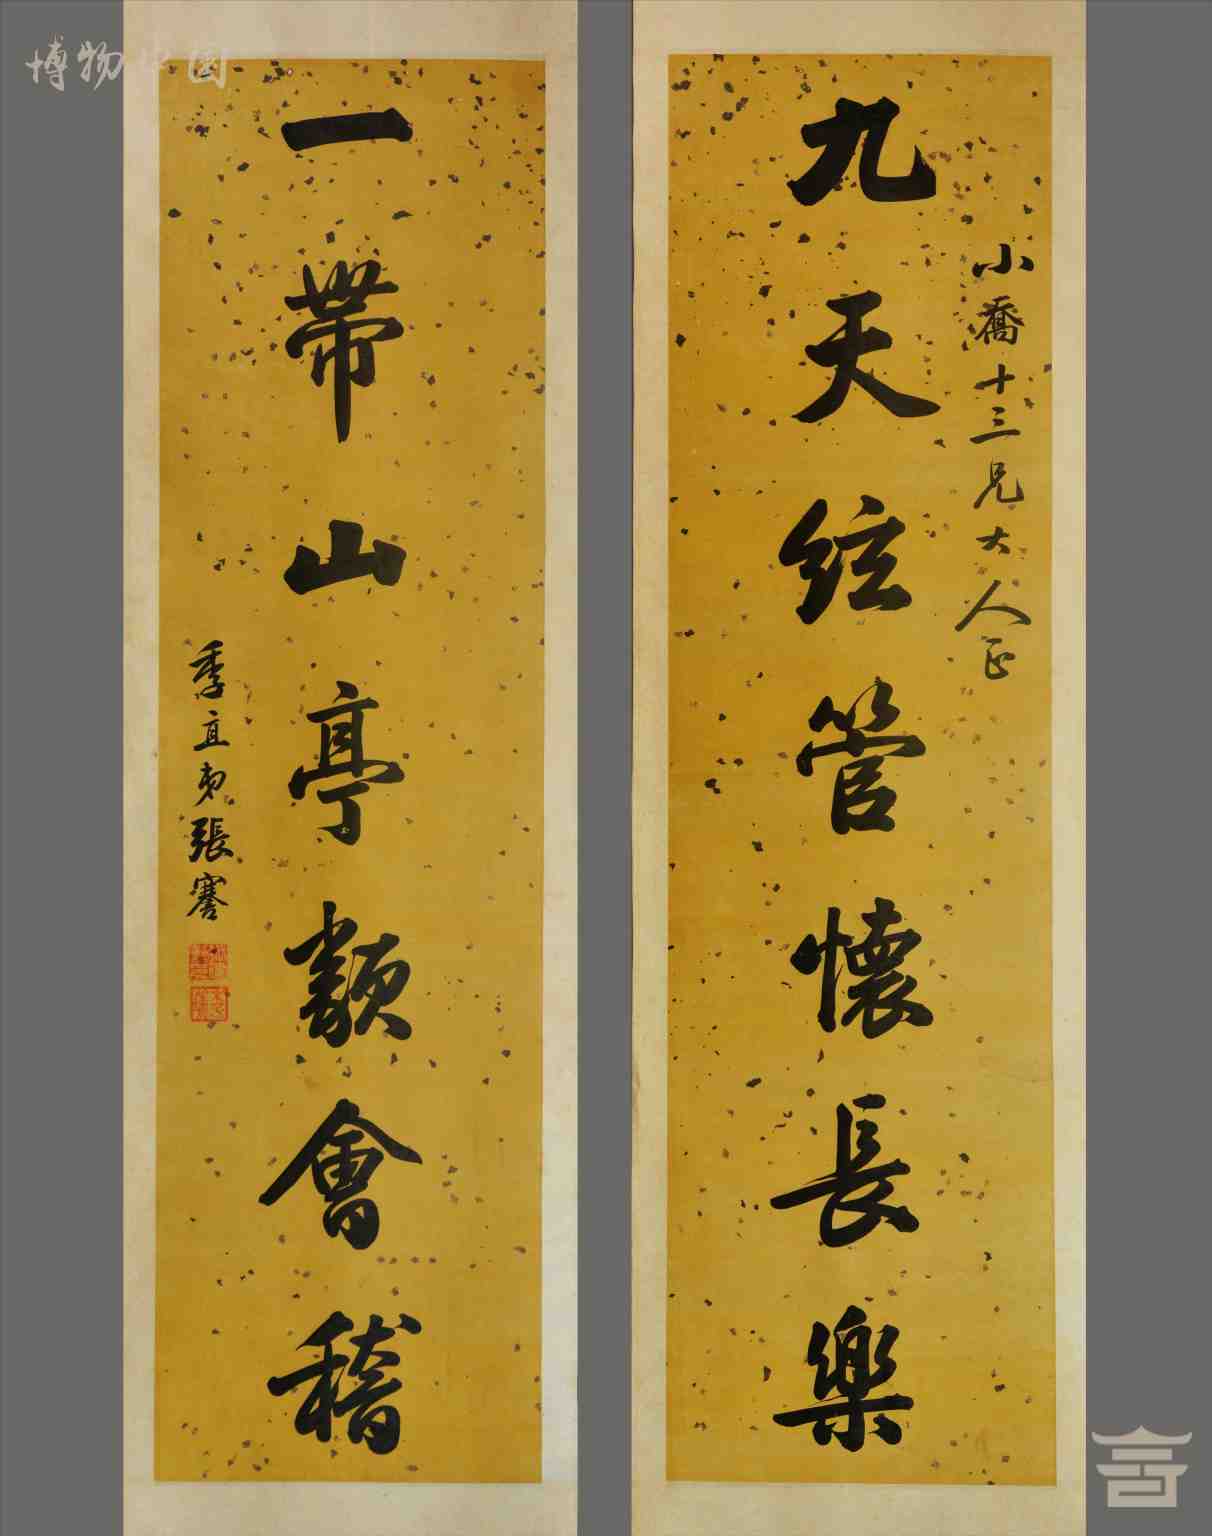 小喬十三兄大人正
九天絃管懷長樂
一帶山亭類會稽
季直弟張謇
博物中国